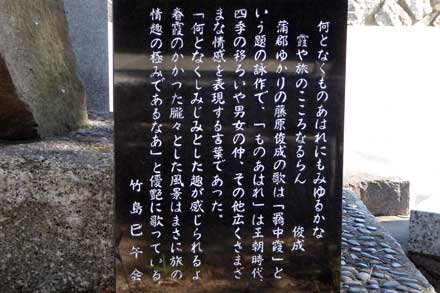 何となくものあはれにもみゆるかな
霞や旅のこころなるらん
俊成
蒲郡ゆかりの藤原俊成の歌は「羇中霞」と
いう題の詠作で、「ものあはれ」は王朝時代、
四季の移ろいや男女の仲、その他広くさまざ
まな情感を表現する言葉であった。
「何となくしみじみとした趣が感じられるよ
春霞のかかった朧々とした風景はまさに旅の
情趣の極みであるなあ」と優艶に歌っている。
竹島巳午会